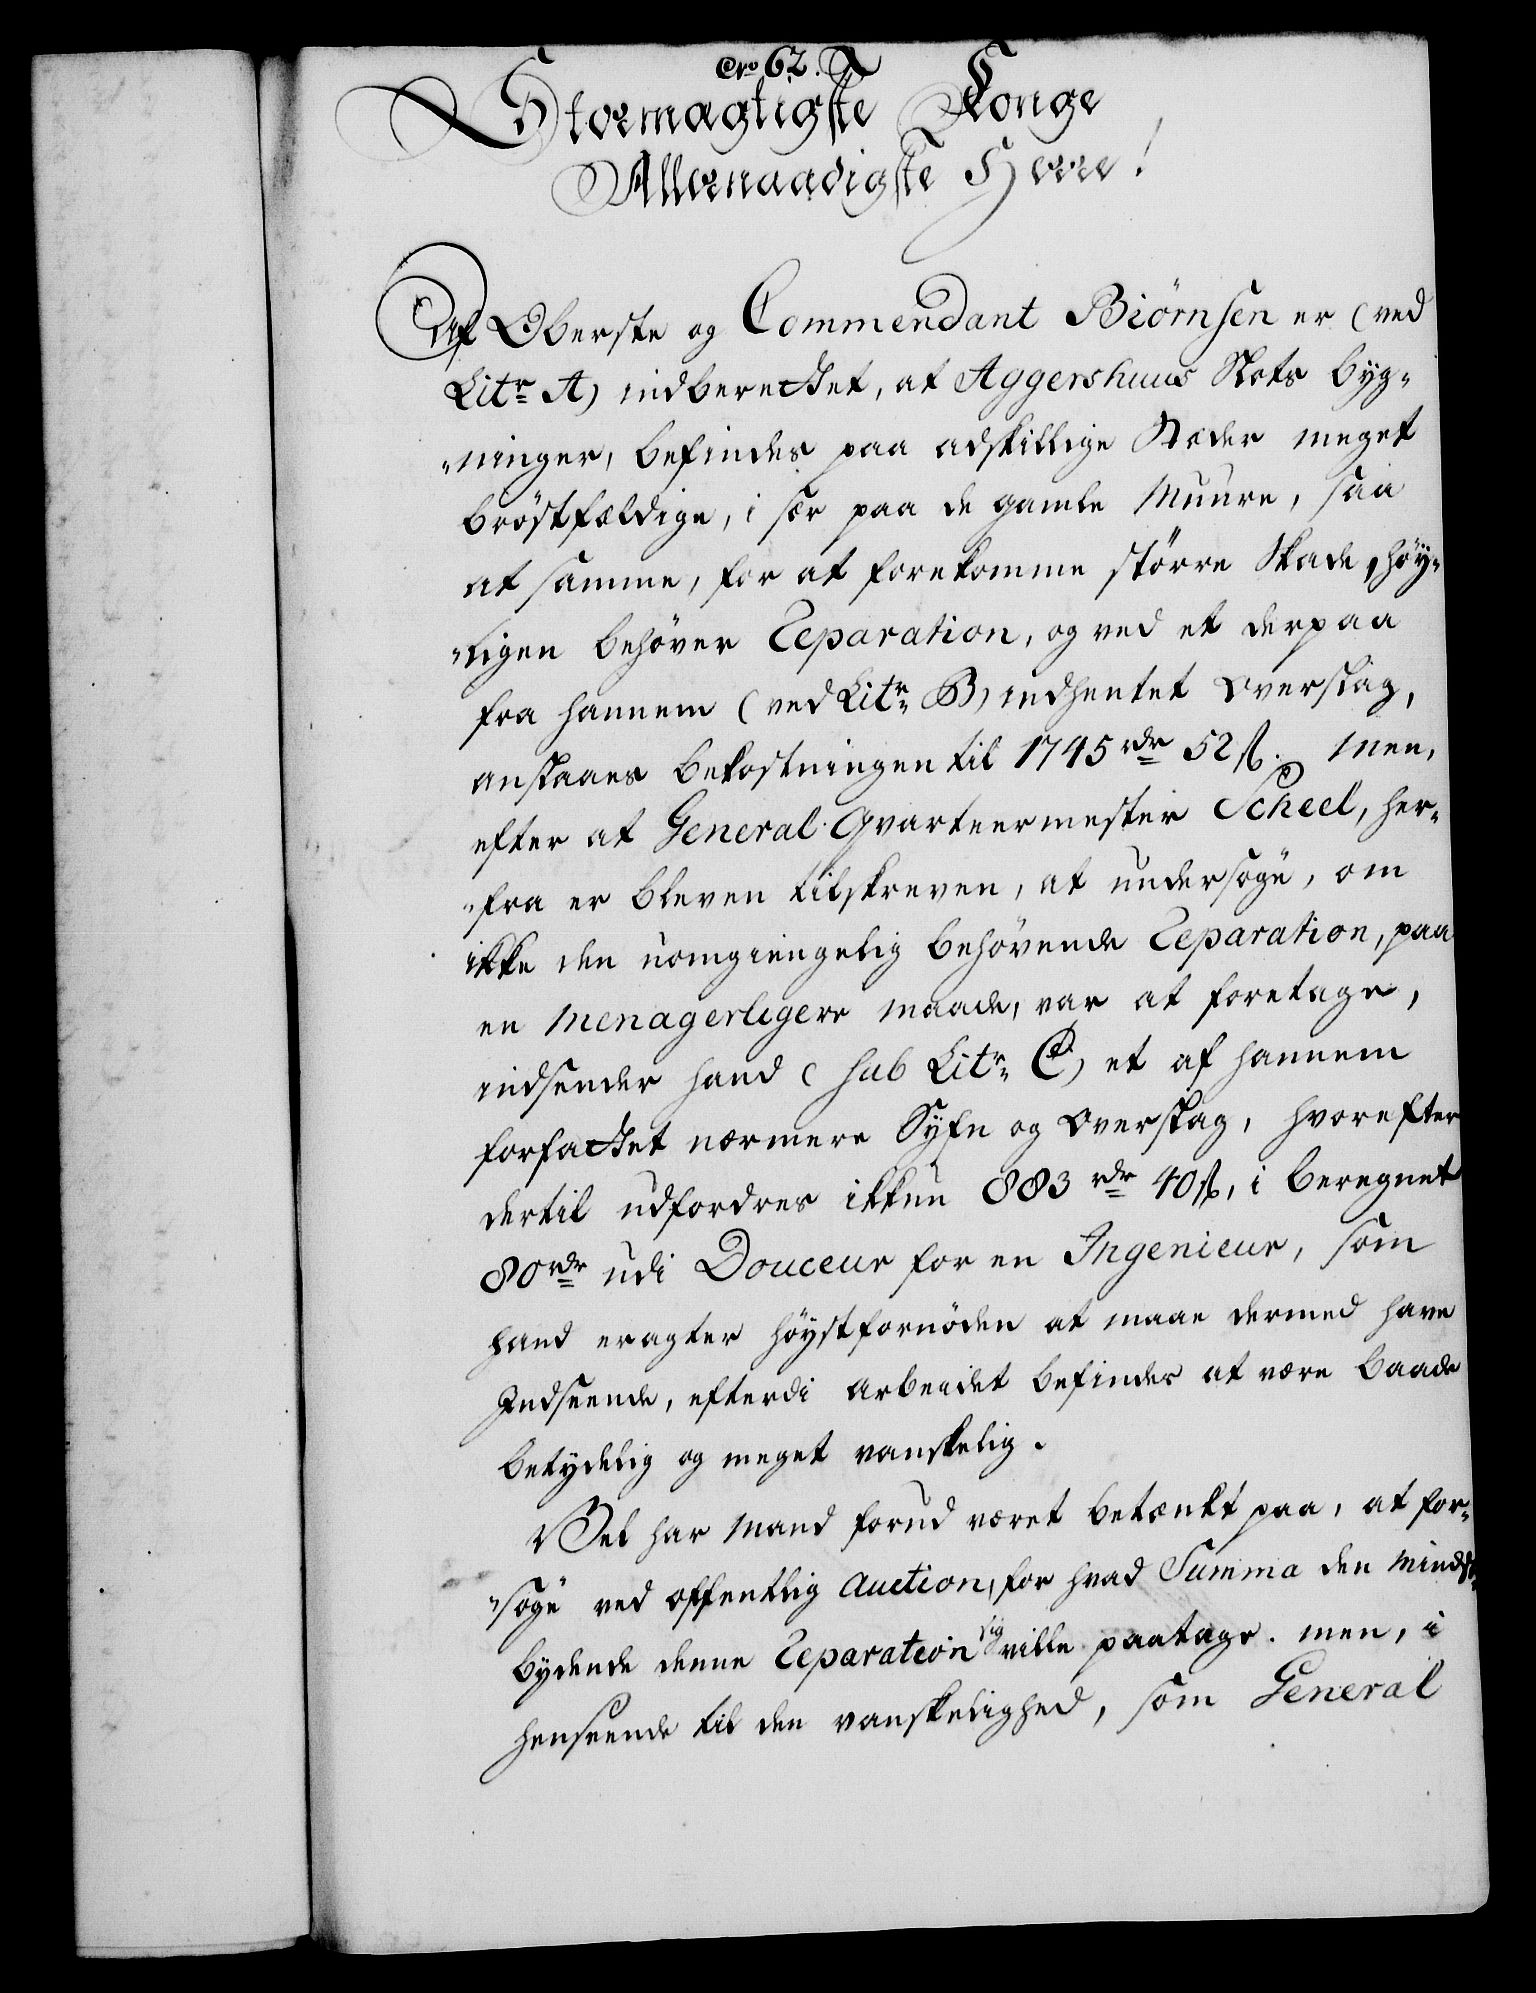 No 62.
Stormægtigste Konge
Allernaadigste Herre!
Af Oberste og Commendant Biørnsen er (ved
Litr A) indberettet, at Aggershuus Slots byg-
"ninger, befindes paa adskillige Stæder meget
brøstfældige, i sær paa de gamle Muure, saa
at samme, for at forekomme større Skade, høy-
"ligen behøver Reparation, og ved et derpaa
fra hannem (ved Litr B) indhentet Overslag,
anslaaes bekostningen til 1745 rdr 52 s. Men,
efter at General-Qvarteermester Scheel, her-
"fra er bleven tilskreven, at undersøge, om
ikke den uomgiengelig behøvende Reparation, paa
en menagerligere maade, var at foretage,
indsender hand (sub Litr C) et af hannem
forfattet nærmere Syfn og Overslag, hvorefter
dertil udfordres ikkun 883 rdr 40 s, i beregnet
80 rdr udi Douceur for en Ingenieur, som
hand eragter høystfornøden at maae dermed have
Indseende, efterdi arbeidet befindes at være baade
betydelig og meget vanskelig.
Vel har mand forud været betænkt paa, at for-
"søge ved offentlig Auction, for hvad Summa den mindst-
bydende denne Reparation sig ville paatage. men, i
henseende til den vanskelighed, som General